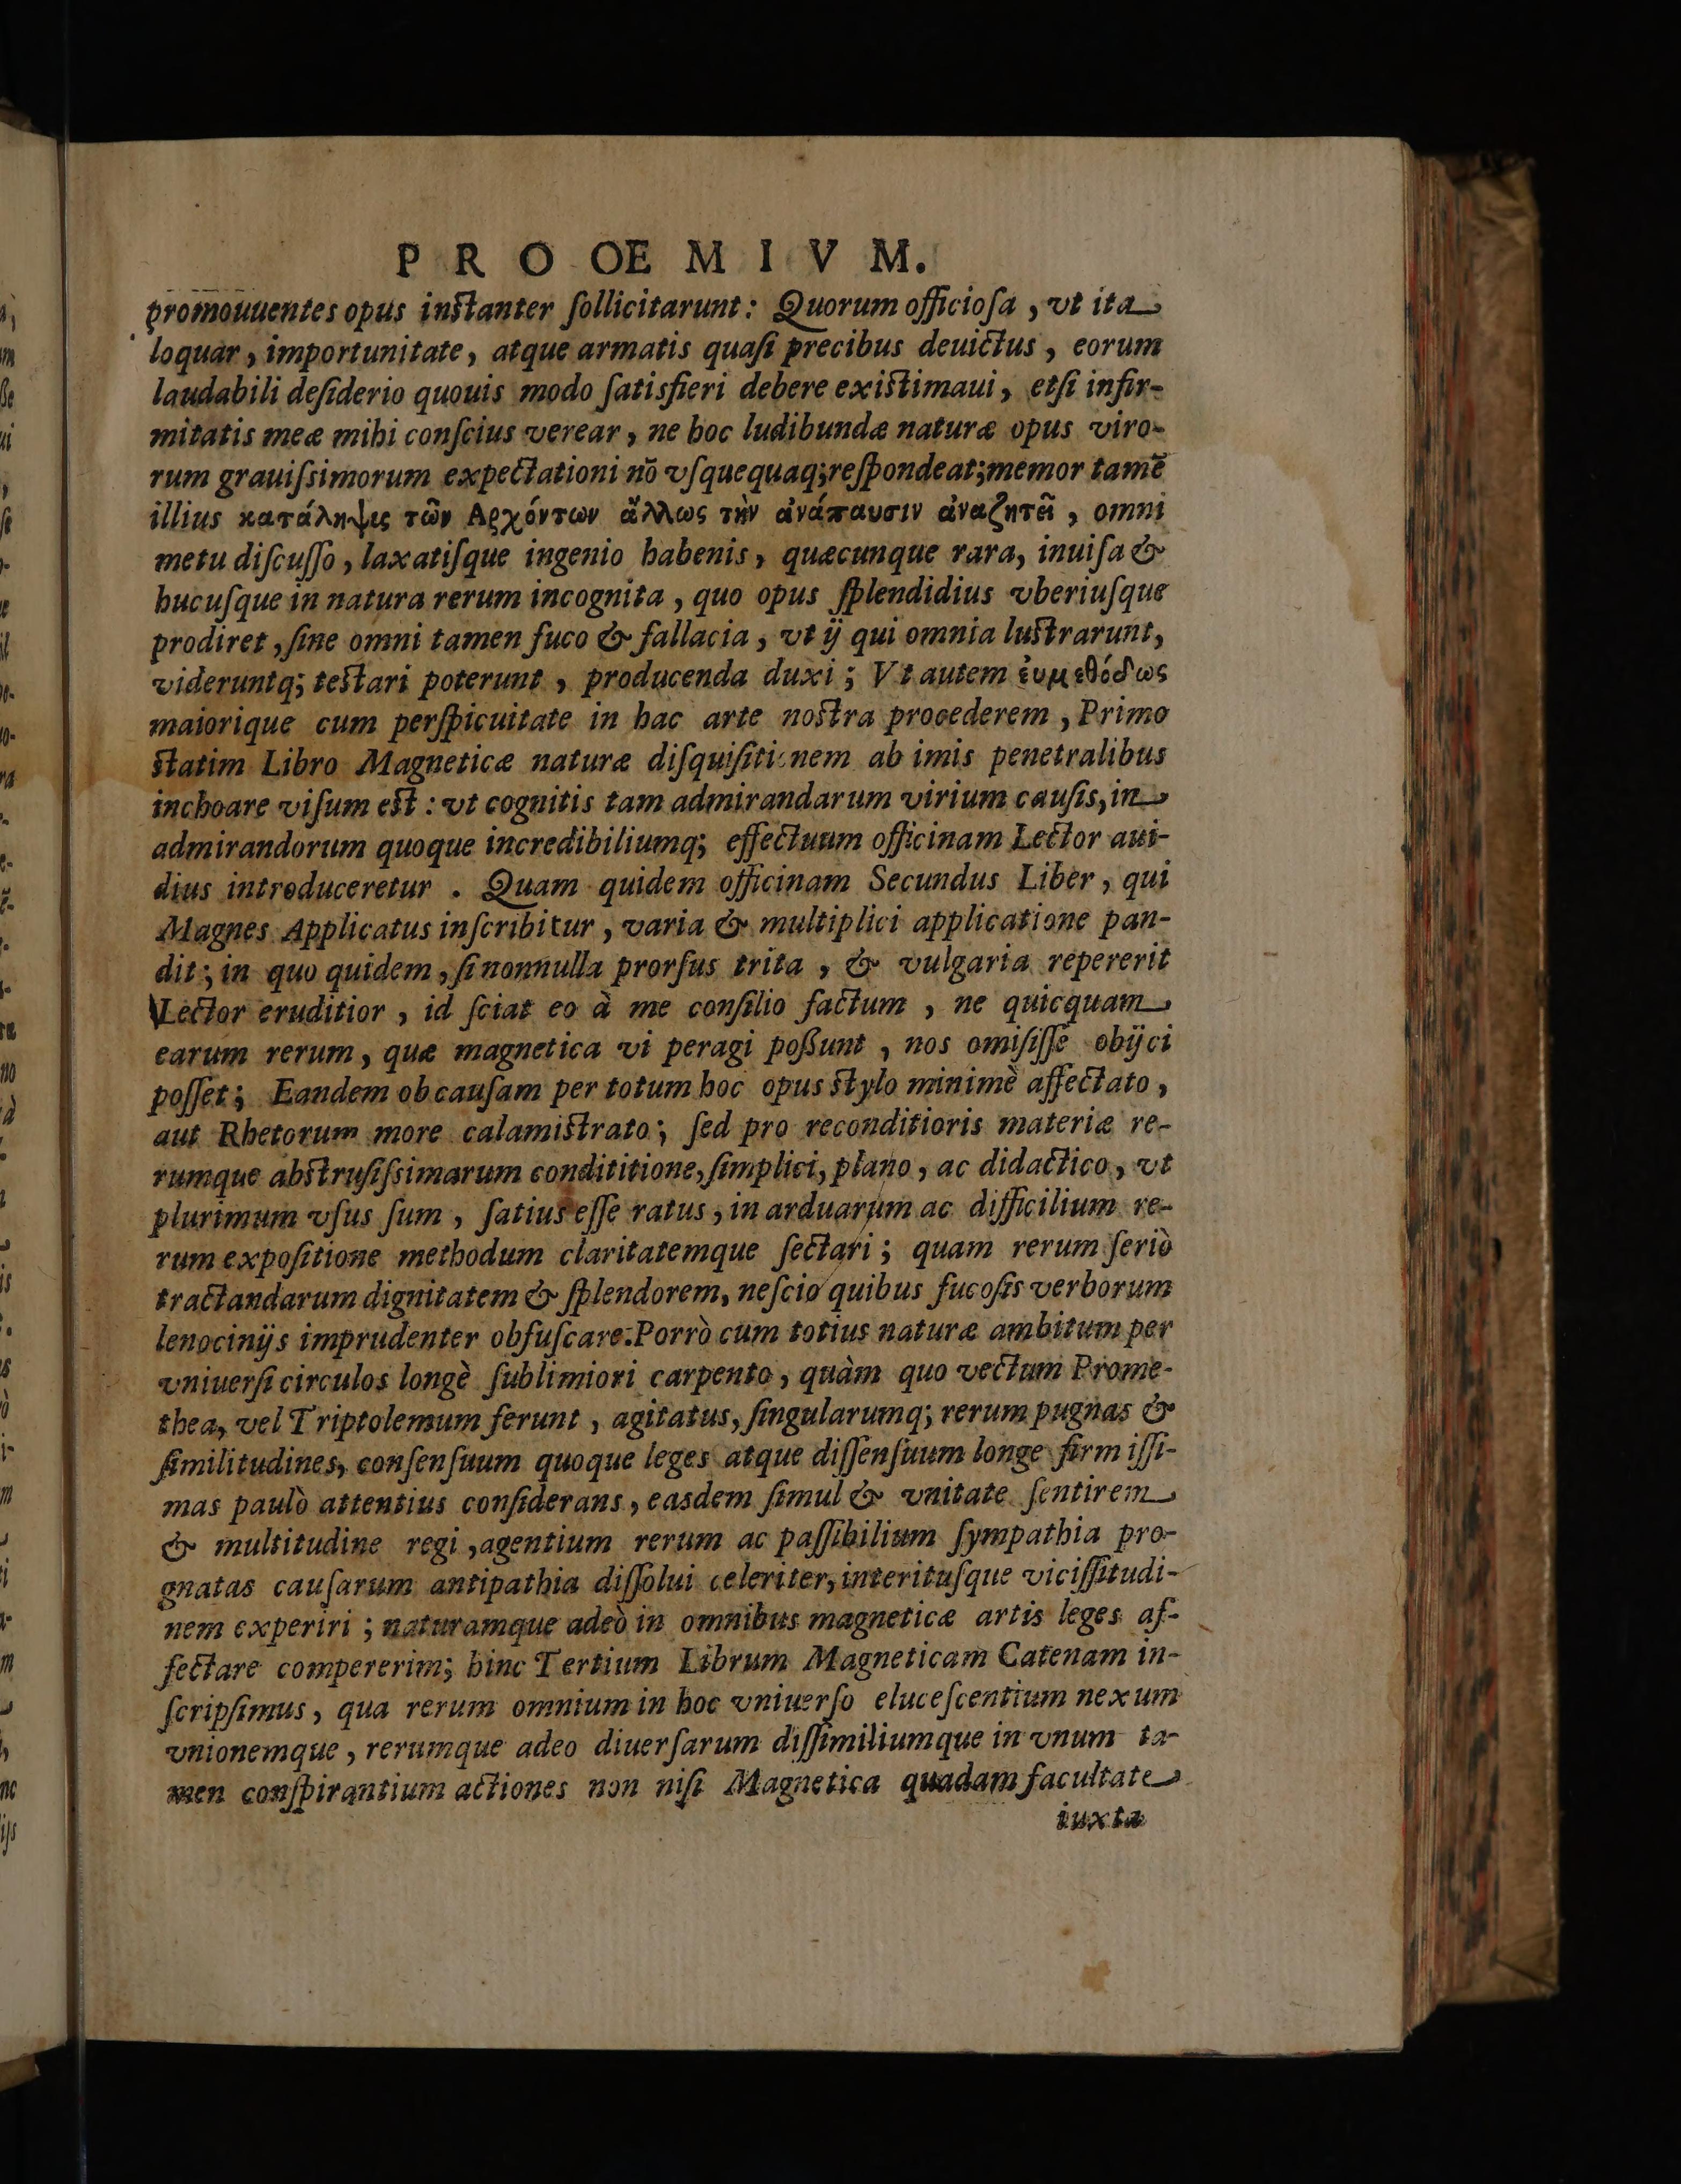 PROOEMIVM.
promouuentes opus inſtanter ſollicitarunt: Quorum officioſa, vt ita
loquar, importunitate, atque armatis quaſi precibus deuictus, eorum
laudabili deſiderio quouis modo ſatisfieri debere exiſtimaui, etſi infir-
mitatis meæ mihi conſcius verear, ne hoc ludibundæ naturæ opus viro-
rum grauiſsimorum expectationi nō vſquequaq; reſpondeat; memor tamē
illius κατάληψις τῶν Αρχόντων ἄλλως τὴν ἀνάπαυσιν ἀναζητεῖ, omni
metu diſcuſſo, laxatiſque ingenio habenis, quæcunque rara, inuiſa &
hucuſque in natura rerum incognita, quo opus ſplendidius vberiuſque
prodiret, ſine omni tamen fuco & fallacia, vt ij qui omnia luſtrarunt,
videruntq; teſtari poterunt, producenda duxi; Vt autem ἐυμεθόδως
maiorique cum perſpicuitate in hac arte noſtra procederem, Primo
ſtatim Libro Magneticæ naturæ diſquiſitionem ab imis penetralibus
inchoare viſum eſt: vt cognitis tam admirandarum virium cauſis, in
admirandorum quoque incredibiliumq; effectuum officinam Lector aui-
dius introduceretur. Quam quidem officinam Secundus Liber, qui
Magnes Applicatus inſcribitur, varia & multiplici applicatione pan-
dit; in quo quidem, ſi nonnulla prorſus trita, & vulgaria repererit
Lector eruditior, id ſciat eo à me conſilio factum, ne quicquam
earum rerum, quæ magnetica vi peragi poſſunt, nos omiſiſſe obijci
poſſet; Eandem ob cauſam per totum hoc opus ſtylo minimè affectato,
aut Rhetorum more calamiſtrato; ſed pro reconditioris materiæ re-
rumque abſtruſiſsimarum condititione, ſimplici, plano, ac didactico, vt
plurimum vſus ſum, ſatius eſſe ratus, in arduarum ac difficilium re-
rum expoſitione methodum claritatemque ſectari; quam rerum ſeriò
tractandarum dignitatem & ſplendorem, neſcio quibus fucoſis verborum
lenocinijs imprudenter obfuſcare. Porrò cum totius naturæ ambitum per
vniuerſi circulos longè ſublimiori carpento, quàm quo vectum Prome-
thea, vel Triptolemum ferunt, agitatus, ſingularumq; rerum pugnas &
ſimilitudines, conſenſuum quoque leges atque diſſenſuum longe firmiſſi-
mas paulò attentius conſiderans, easdem ſimul & vnitate ſentirem
& multitudine regi, agentium rerum ac paſſibilium ſympathia pro-
gnatas cauſarum antipathia diſſolui celeriter, interituſque viciſſitudi-
nem experiri; naturamque adeò in omnibus magneticæ artis leges af-
fectare compererim; hinc Tertium Librum Magneticam Catenam in-
ſcripſimus, qua rerum omnium in hoc vniuerſo eluceſcentium nexum
vnionemque, rerumque adeo diuerſarum diſſimiliumque in vnum ta-
men conſpirantium actiones non niſi Magnetica quadam facultate
iuxta